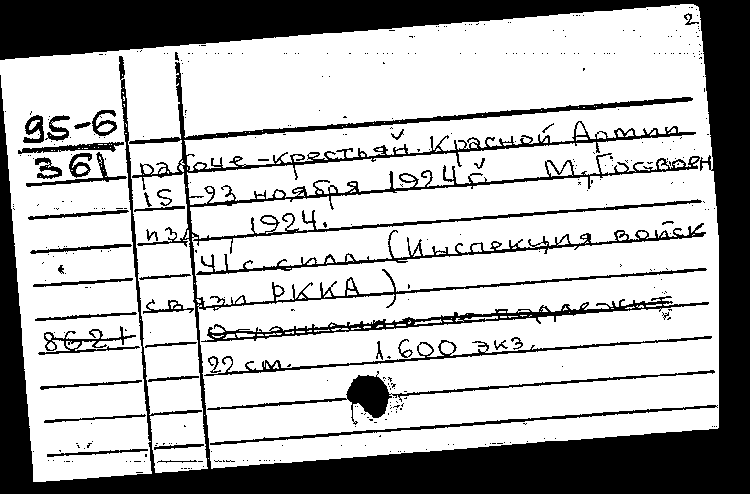 2
95-6
361
рабоче-крестьян. Красной Армии
15-23 ноября 1924 г. М., Госвоен
изд., 1924.
41 с. с илл. (Инспекция войск
связи РККА).
8621
Оглашению не подлежит
22 см. 1.600 экз.